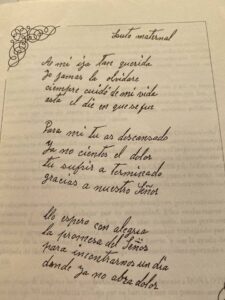 Luto maternal
A mi ija tan querida
Yo jamas la olvidare
ciempre cuidó de mi vida
asta el die en que se fue
Para mi tu as descansado
Ya no cientes el dolor
tu sufrir a terminado
gracias a nuestro Señor
Me espero con alegria
la promesa del Señor
para incontrarnos un dia
donde ya no abra dolor